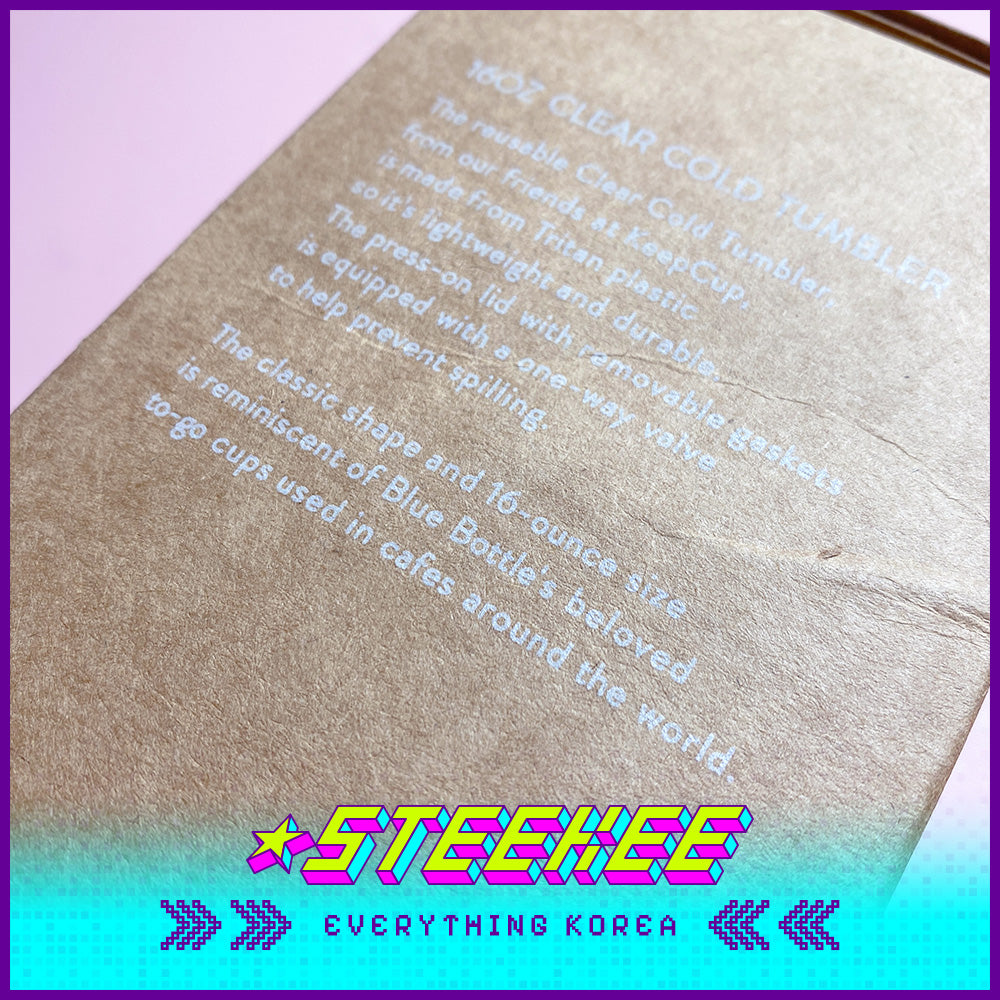 16OZ CLEAR COLD TUMBLER
The reusable Clear Cold Tumbler,
from our friends at KeepCup,
is made from Tritan plastic
so it's lightweight and durable.
The press-on lid with removable gaskets
is equipped with a one-way valve
to help prevent spilling.
The classic shape and 16-ounce size
is reminiscent of Blue Bottle's beloved
to-go cups used in cafes around the world.
STEEKEE
EVERYTHING KOREA